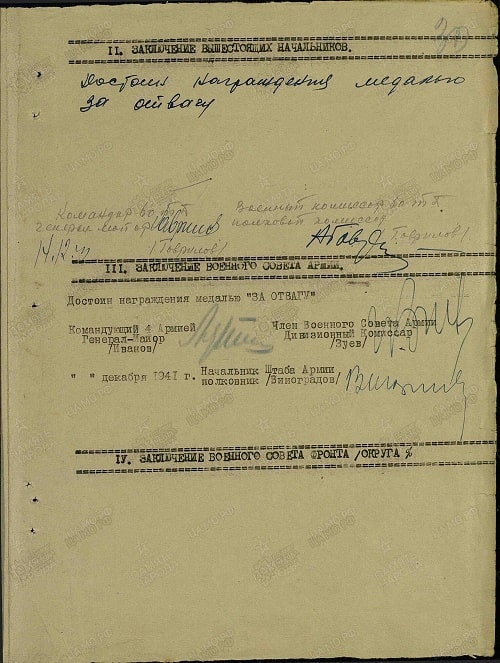 II. ЗАКЛЮЧЕНИЕ ВЫШЕСТОЯЩИХ НАЧАЛЬНИКОВ.
Достоин награждения медалью
за отвагу
Командир 60 т п
Военный комиссар 60 т п
генерал
полковой комиссар
/Гаврилов/
14.12.41
III. ЗАКЛЮЧЕНИЕ ВОЕННОГО СОВЕТА АРМИИ.
Достоин награждения медалью "ЗА ОТВАГУ"
Командующий 4 Армией Член Военного Совета Армии
Генерал-Майор Дивизионный Комиссар
/Иванов/ /Зуев/
" " декабря 1941 г. Начальник Штаба Армии
полковник /Виноградов/
IУ. ЗАКЛЮЧЕНИЕ ВОЕННОГО СОВЕТА ФРОНТА /ОКРУГА %